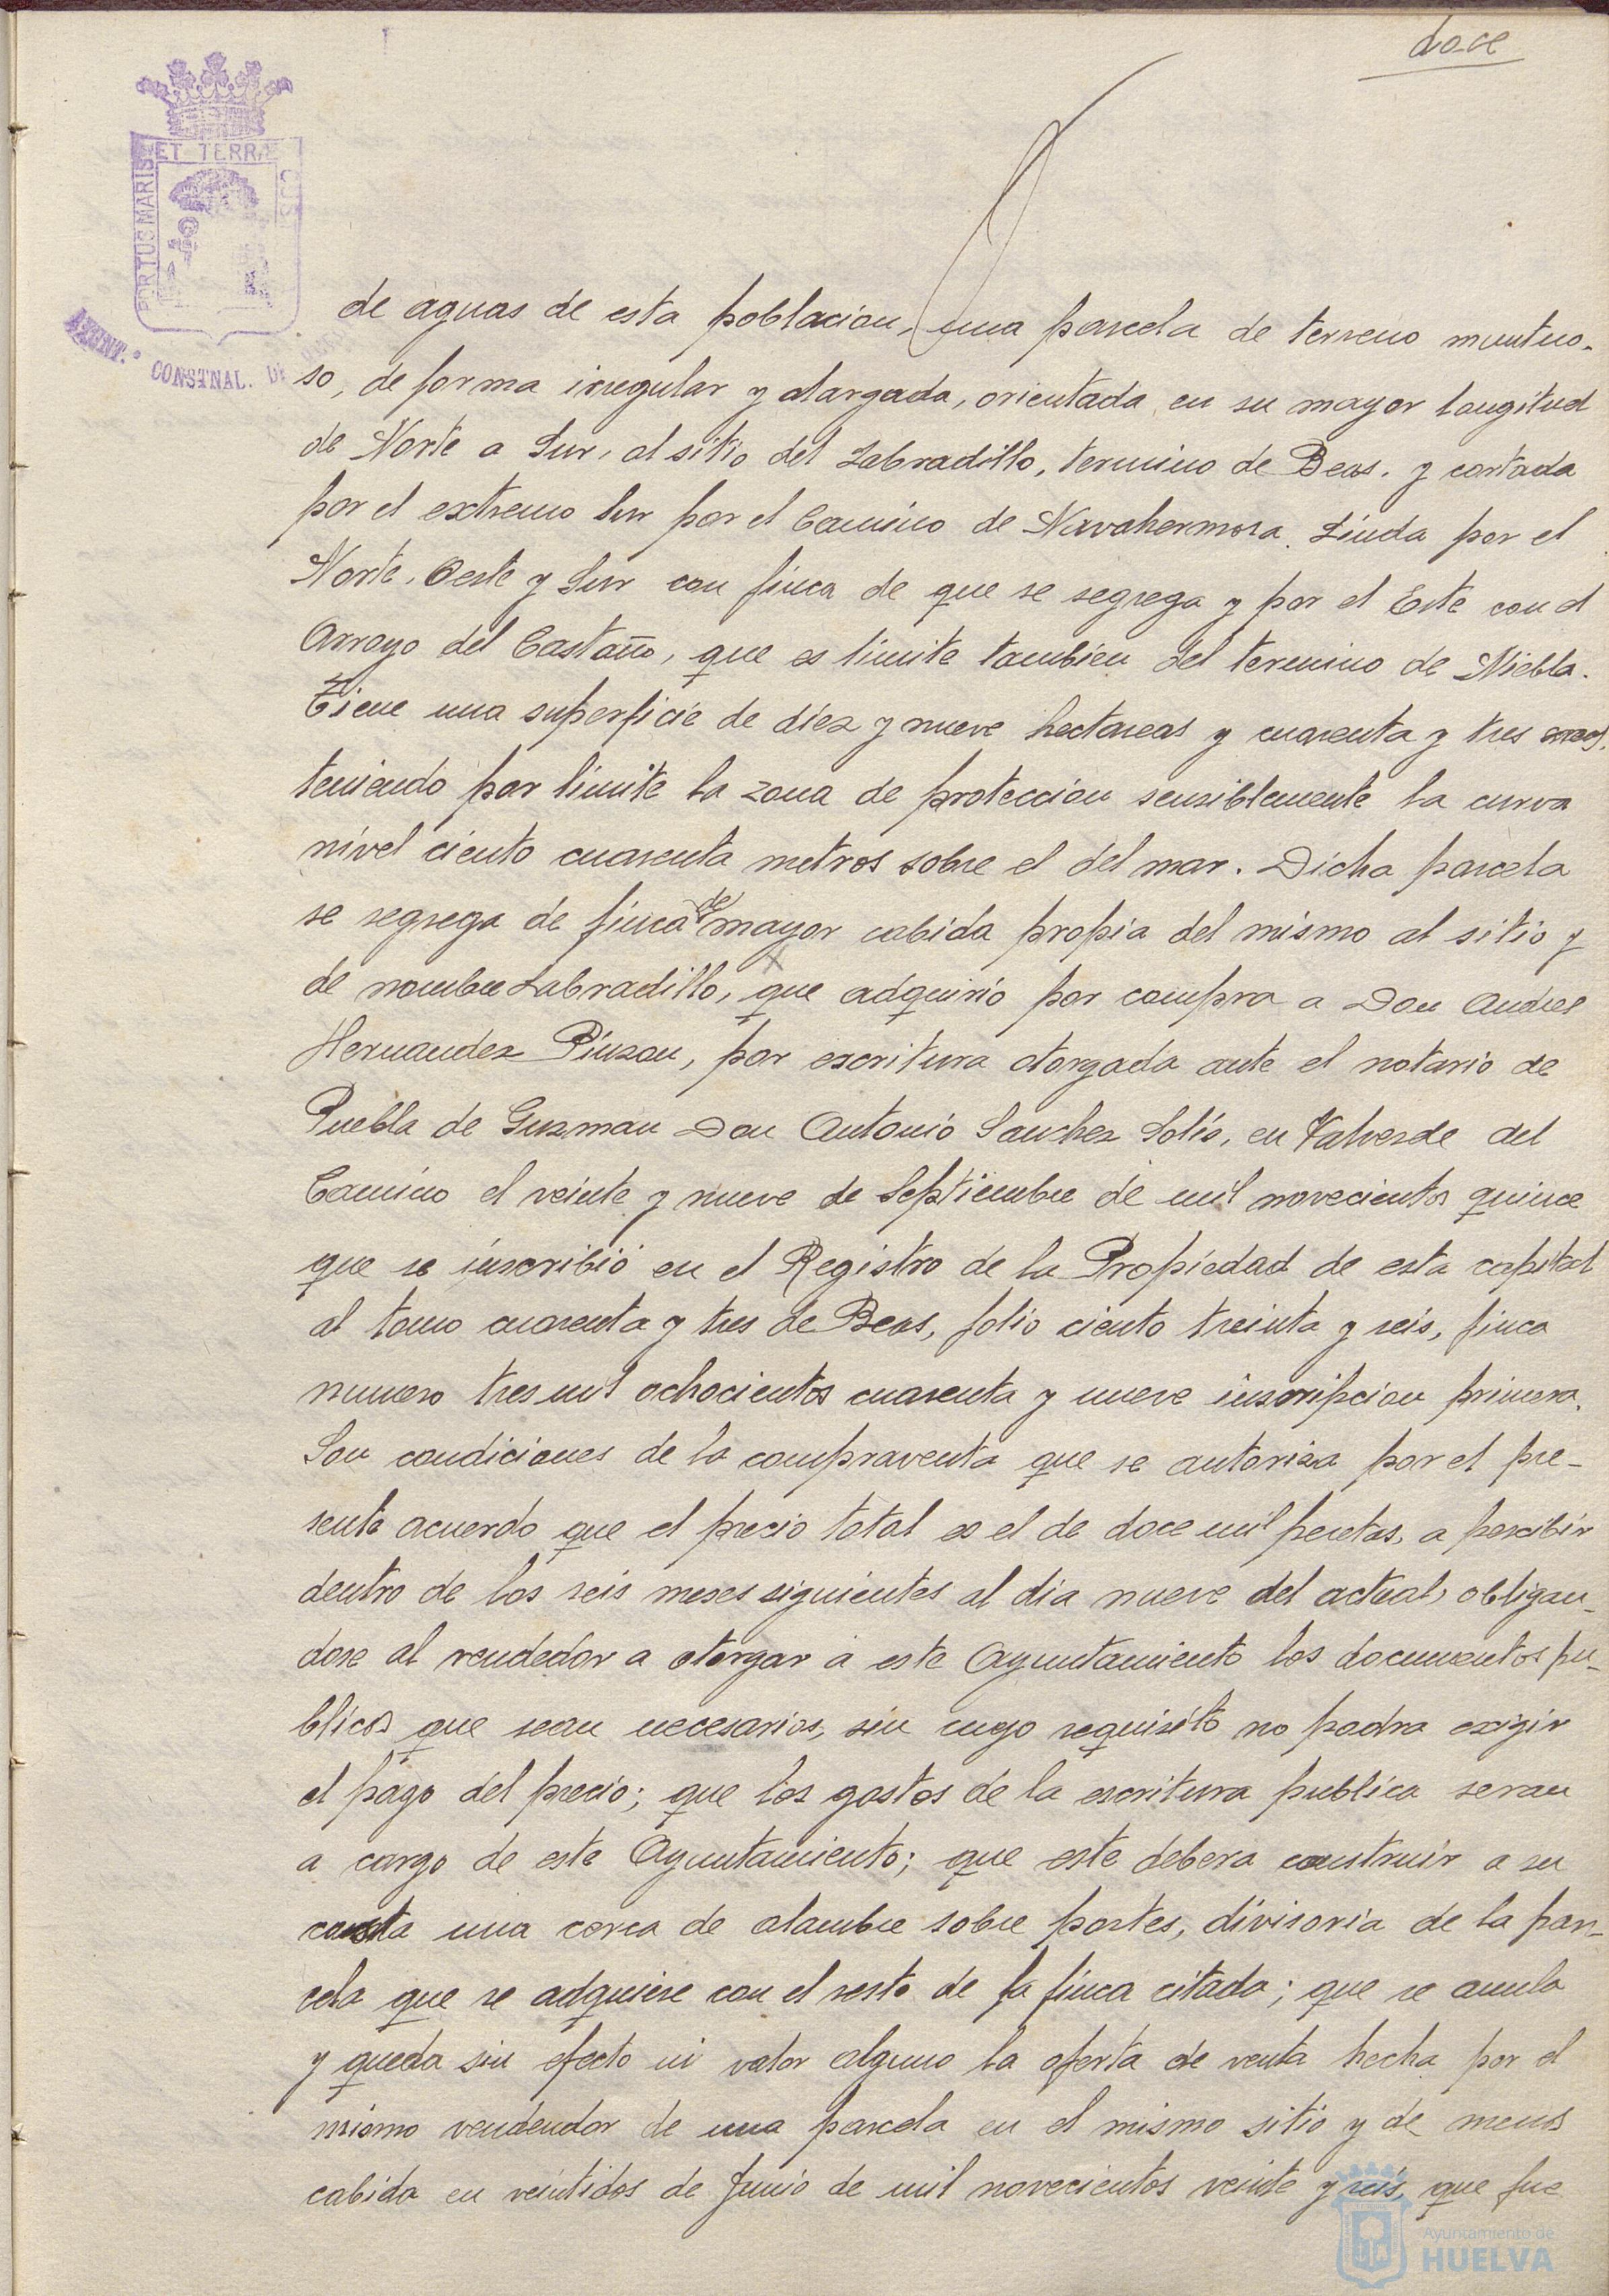 doce
PORTUS MARIS ET TERRÆ CUS
AYUNT.º CONSTNAL. DE
de aguas de esta poblacion, una parcela de terreno muntuo-
so, de forma irregular y alargada, orientada en su mayor longitud
de Norte a Sur, al sitio del Labradillo, termino de Beas. y cortada
por el extremo Sur por el Camino de Navahermosa. Linda por el
Norte, Oeste y Sur con finca de que se segrega y por el Este con el
Arroyo del Castaño, que es limite tambien del termino de Niebla.
Tiene una superficie de diez y nueve hectareas y cuarenta y tres areas,
teniendo por limite la zona de proteccion sensiblemente la curva
nivel ciento cuarenta metros sobre el del mar. Dicha parcela
se segrega de finca de mayor cabida propia del mismo al sitio y
de nombre Labradillo, que adquirió por compra a Don Andres
Hernandez Pinzon, por escritura otorgada ante el notario de
Puebla de Guzman Don Antonio Sanchez Solis, en Valverde del
Camino el veinte y nueve de Septiembre de mil novecientos quince
que se inscribió en el Registro de la Propiedad de esta capital
al tomo cuarenta y tres de Beas, folio ciento treinta y seis, finca
numero tres mil ochocientos cuarenta y nueve inscripcion primera.
Son condiciones de la compraventa que se autoriza por el pre-
sente acuerdo que el precio total es el de doce mil pesetas, a percibir
dentro de los seis meses siguientes al dia nueve del actual, obligan-
dose al vendedor a otorgar a este Ayuntamiento los documentos pu-
blicos que sean necesarios, sin cuyo requisito no podra exigir
el pago del precio; que los gastos de la escritura publica seran
a cargo de este Ayuntamiento; que este debera construir a su
costa una cerca de alambre sobre postes, divisoria de la par-
cela que se adquiere con el resto de la finca citada; que se anula
y queda sin efecto ni valor alguno la oferta de venta hecha por el
mismo vendendor de una parcela en el mismo sitio y de menos
cabida en veintidos de Junio de mil novecientos veinte y seis, que fue
Ayuntamiento de
HUELVA